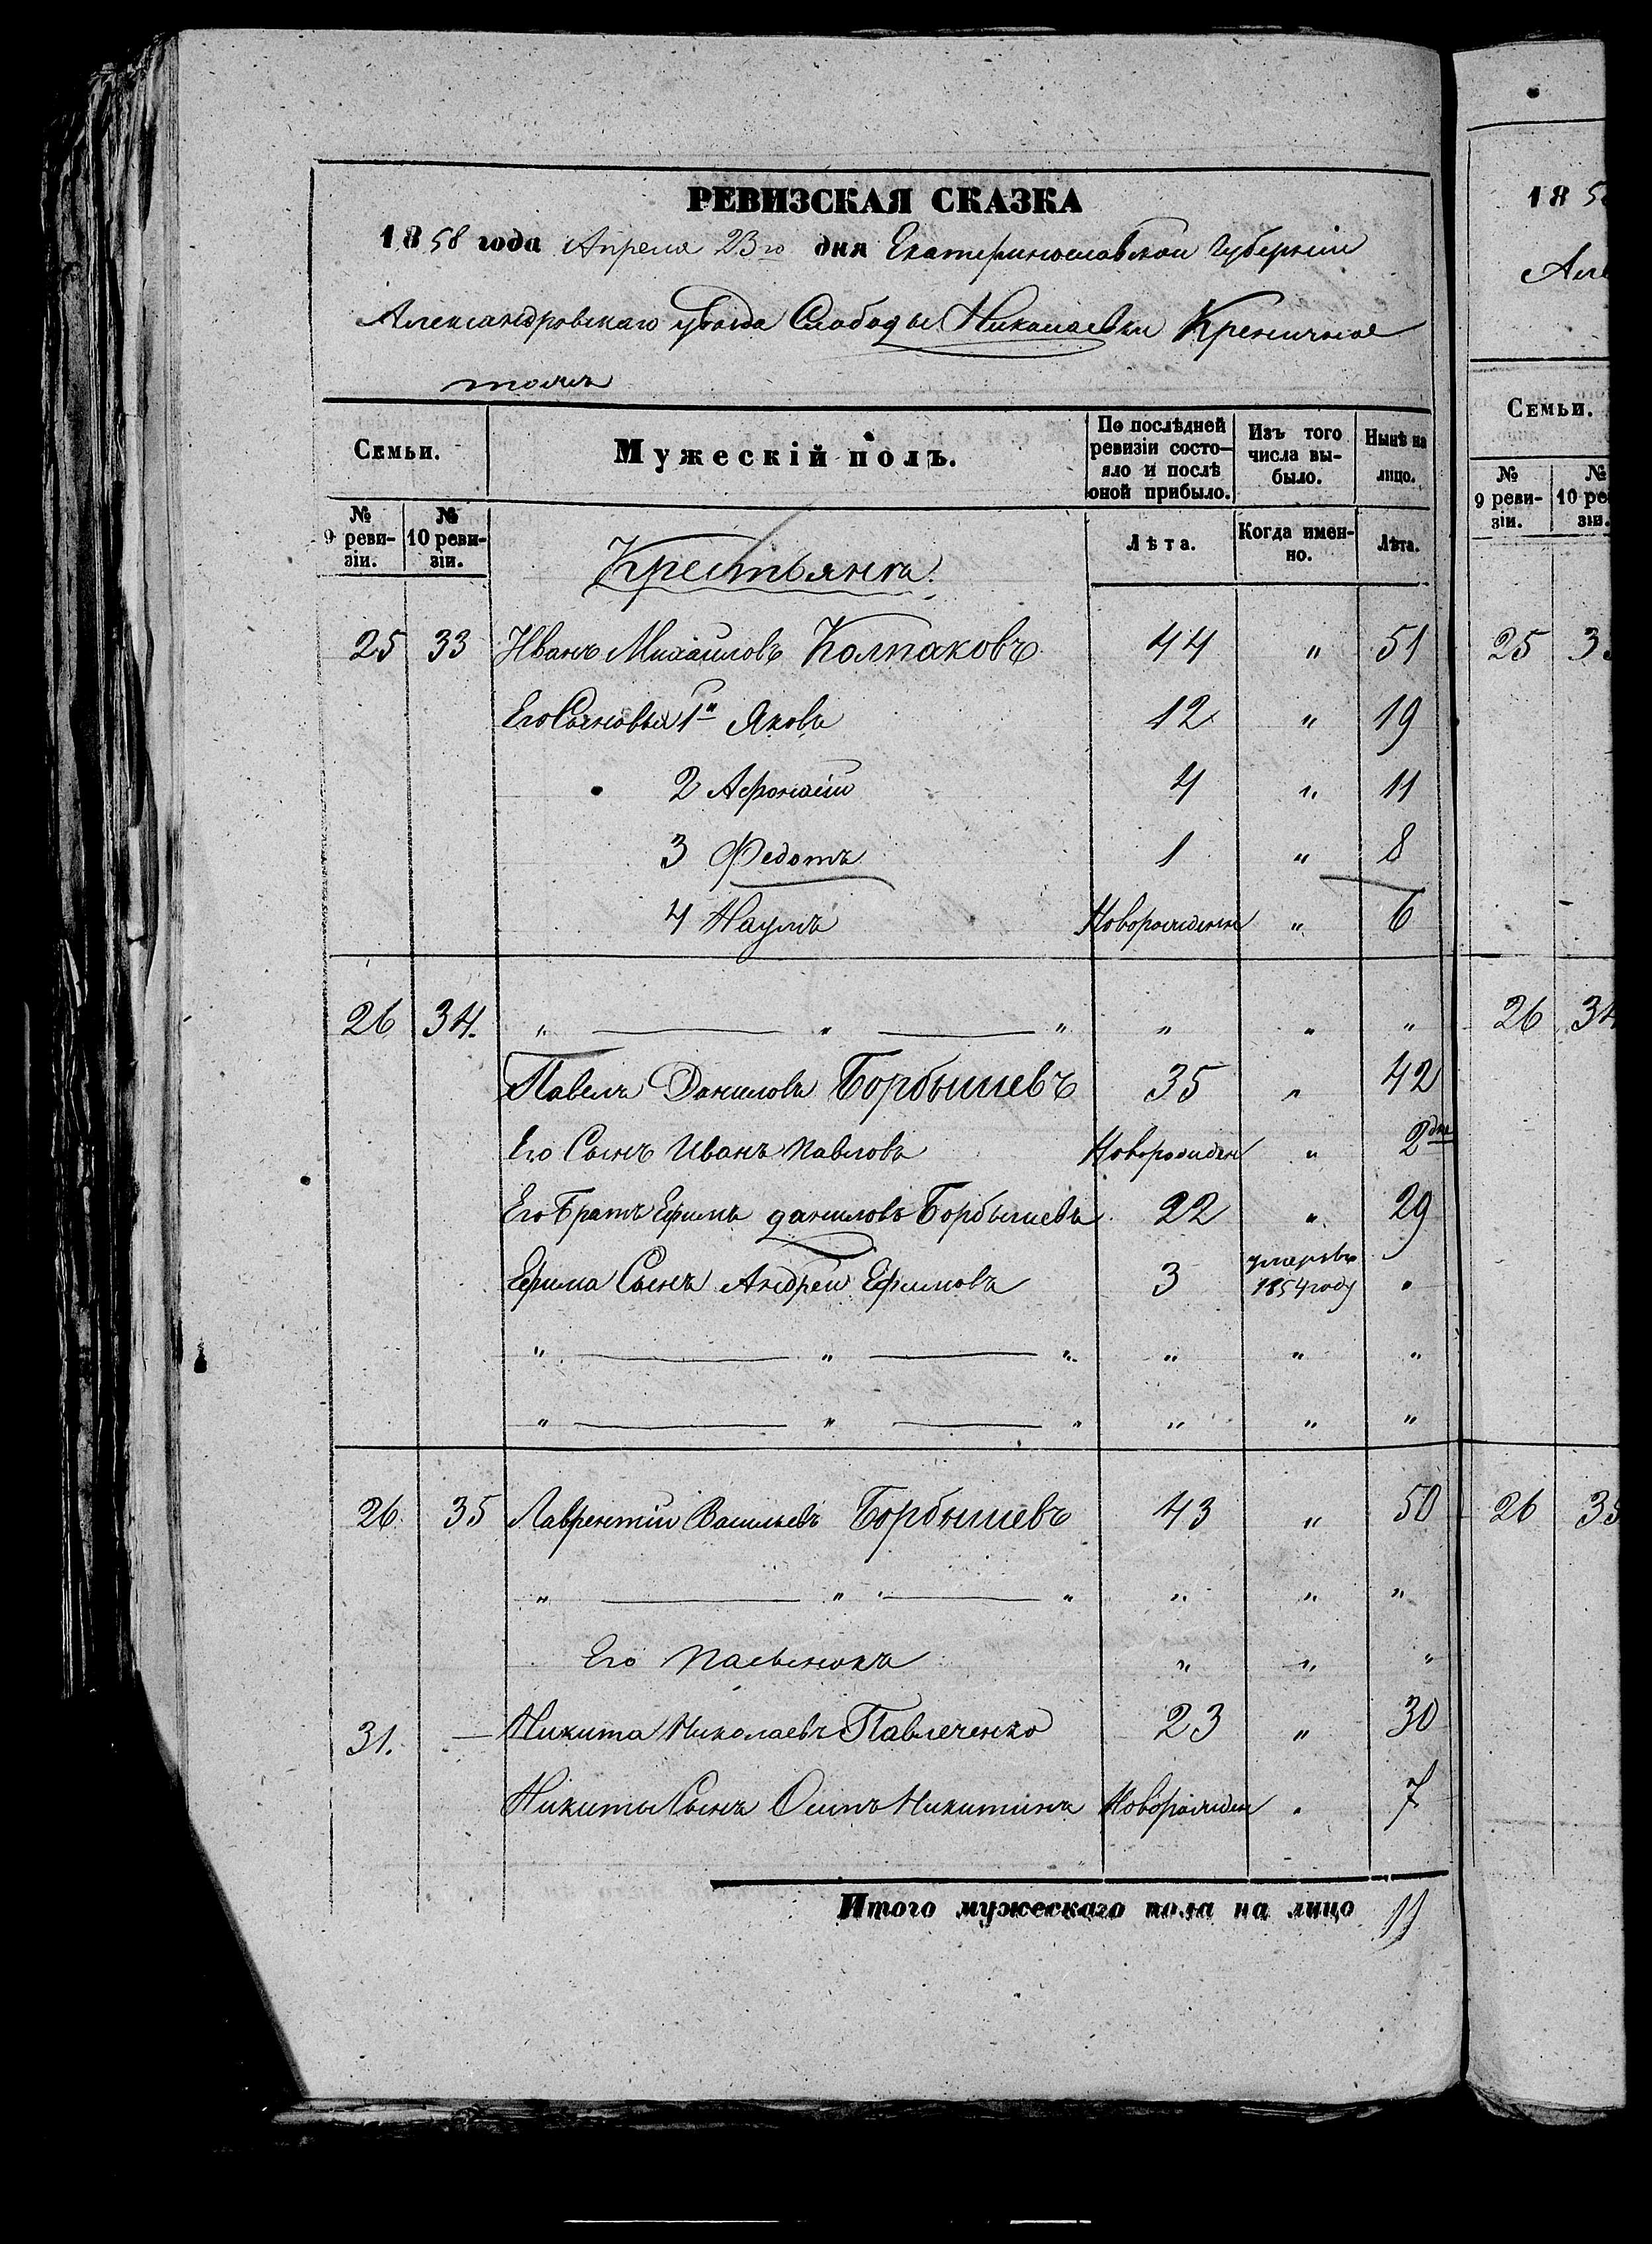 РЕВИЗСКАЯ СКАЗКА
1858 года Апреля 23го дня Екатеринославской Губерніи
Александровскаго уѣзда Слободы Николаевки Креничное
тожъ
Семьи.
Мужескій полъ.
По послѣдней ревизіи состояло и послѣ оной прибыло.
Изъ того числа выбыло.
Нынѣ на лицо.
№ 9 ревизіи.
№ 10 ревизіи.
Лѣта.
Когда именно.
Лѣта.
Крестьянъ.
25 33 Иванъ Михайловъ Колпаковъ 44 " 51
Его Сыновья 1й Яковъ 12 " 19
2 Афонасій 4 " 11
3 Федотъ 1 " 8
4 Наумъ Новорожденн " 6
26 34. " — " — " " " "
Павелъ Даниловъ Борбышевъ 35 " 42
Его Сынъ Иванъ Павловъ Новорожден " 2 дни
Его Братъ Ефимъ даниловъ Борбышевъ 22 " 29
Ефима Сынъ Андрей Ефимовъ 3 умеръ въ 1854 году "
" — " — " " " "
" — " — " " " "
26 35 Лаврентій Васильевъ Борбышевъ 43 " 50
" — " — " " " "
Его Пасынокъ " " "
31. — Никита Николаевъ Павлеченко 23 " 30
Никиты Сынъ Осипъ Никитинъ Новорожден " 7
Итого мужескаго пола на лицо 11
18 5
Але
Семьи.
№ 9 ревизіи.
№ 10 ре
зіи.
25 3
26 34
26 35